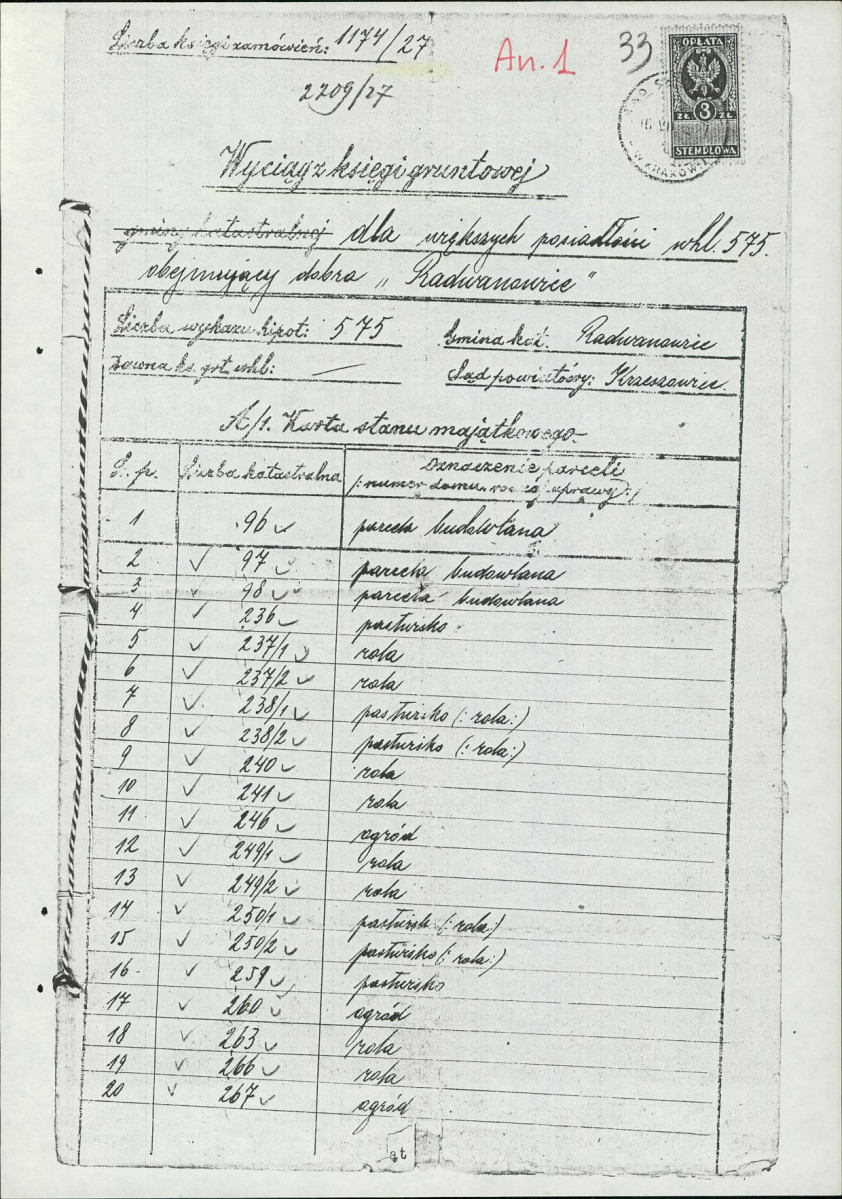 Liczba księgi zamówień: 1174/27
An. 1
33
2209/27
OPŁATA
3
ZŁ ZŁ
STEMPLOWA
KRAKOW
Wyciąg z księgi gruntowej
gminy katastralnej dla większych posiadłości whl. 575.
obejmujący dobra „Radwanowice"
Liczba wykazu hipot: 575 Gmina kat. Radwanowice
Dawna ks. grt. whl: — Sąd powiatowy: Krzeszowice.
A/1. Karta stanu majątkowego.
L. p. Liczba katastralna Oznaczenie parceli
/: numer domu, rodzaj uprawy :/
1 96 parcela budowlana
2 97 parcela budowlana
3 98 parcela budowlana
4 236 pastwisko
5 237/1 rola
6 237/2 rola
7 238/1 pastwisko (: rola :)
8 238/2 pastwisko (: rola :)
9 240 rola
10 241 rola
11 246 ogród
12 249/1 rola
13 249/2 rola
14 250/1 pastwisk (: rola :)
15 250/2 pastwisko (: rola :)
16 259 pastwisko
17 260 ogród
18 263 rola
19 266 rola
20 267 ogród
at